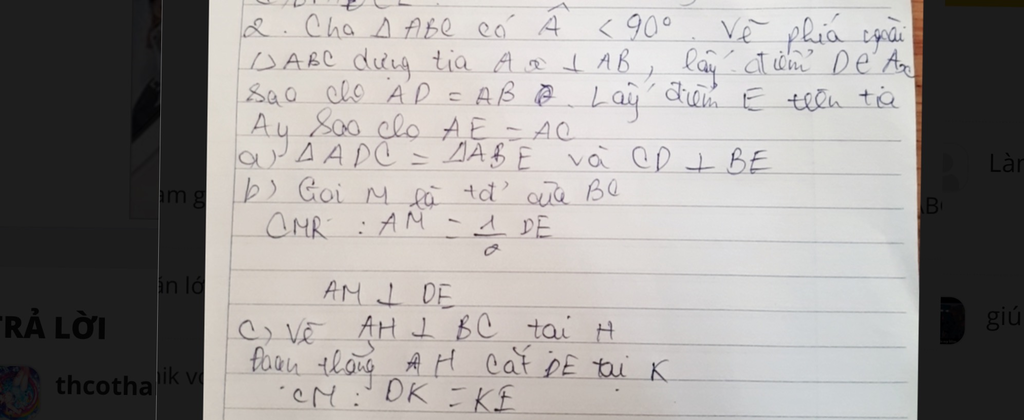 2. Cho △ ABC có Â < 90°. Vẽ phía ngoài
△ ABC dựng tia Ax ⊥ AB, lấy điểm D ∈ Ax
sao cho AD = AB. Lấy điểm E trên tia
Ay sao cho AE = AC
a) △ ADC = △ABE và CD ⊥ BE
b) Gọi M là tđ của BC
CMR : AM = 1/2 DE
AM ⊥ DE
c) Vẽ AH ⊥ BC tại H
Đoạn thẳng AH cắt DE tại K
CM : DK = KE
Làn
am g
AB
ản lớ
giú
TRẢ LỜI
thcotha
nik vớ